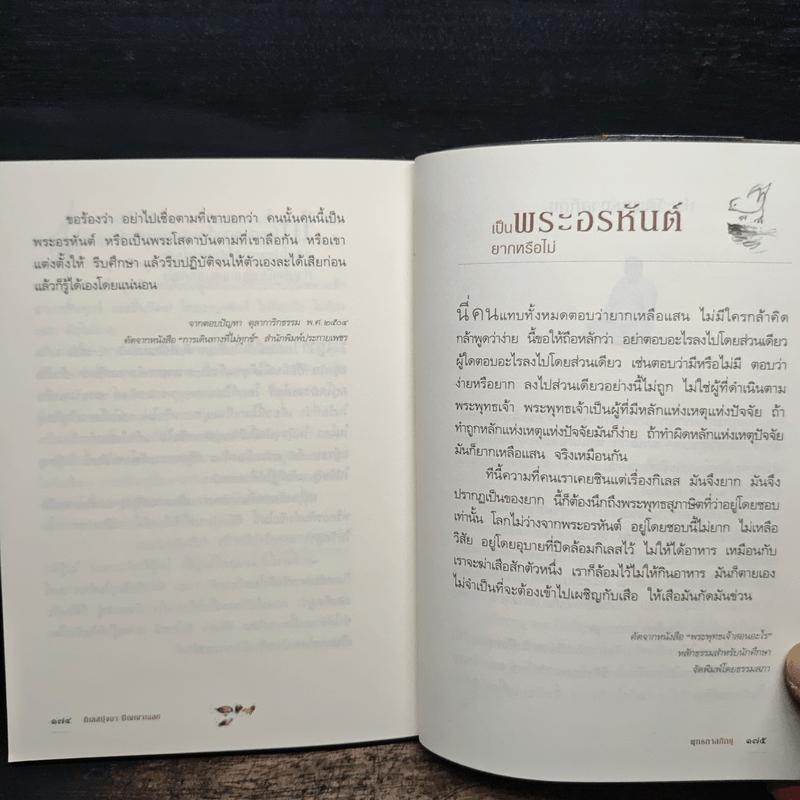 ขอร้องว่า อย่าไปเชื่อตามที่เขาบอกว่า คนนั้นคนนี้เป็น
พระอรหันต์ หรือเป็นพระโสดาบันตามที่เขาลือกัน หรือเขา
แต่งตั้งให้ รีบศึกษา แล้วรีบปฏิบัติจนให้ตัวเองละได้เสียก่อน
แล้วก็รู้ได้เองโดยแน่นอน
จากตอบปัญหา ตุลาการิกธรรม พ.ศ.๒๕๐๔
คัดจากหนังสือ "การเดินทางที่ไม่ทุกข์" สำนักพิมพ์ประกายเพชร
๑๗๔
เป็นพระอรหันต์
ยากหรือไม่
นี่ คนแทบทั้งหมดตอบว่ายากเหลือแสน ไม่มีใครกล้าคิด
กล้าพูดว่าง่าย นี้ขอให้ถือหลักว่า อย่าตอบอะไรลงไปโดยส่วนเดียว
ผู้ใดตอบอะไรลงไปโดยส่วนเดียว เช่นตอบว่ามีหรือไม่มี ตอบว่า
ง่ายหรือยาก ลงไปส่วนเดียวอย่างนี้ไม่ถูก ไม่ใช่ผู้ที่ดำเนินตาม
พระพุทธเจ้า พระพุทธเจ้าเป็นผู้ที่มีหลักแห่งเหตุแห่งปัจจัย ถ้า
ทำถูกหลักแห่งเหตุแห่งปัจจัยมันก็ง่าย ถ้าทำผิดหลักแห่งเหตุปัจจัย
มันก็ยากเหลือแสน จริงเหมือนกัน
ทีนี้ความที่คนเราเคยชินแต่เรื่องกิเลส มันจึงยาก มันจึง
ปรากฏเป็นของยาก นี้ก็ต้องนึกถึงพระพุทธสุภาษิตที่ว่าอยู่โดยชอบ
เท่านั้น โลกไม่ว่างจากพระอรหันต์ อยู่โดยชอบนี้ไม่ยาก ไม่เหลือ
วิสัย อยู่โดยอุบายที่ปิดล้อมกิเลสไว้ ไม่ให้ได้อาหาร เหมือนกับ
เราจะฆ่าเสือสักตัวหนึ่ง เราก็ล้อมไว้ไม่ให้กินอาหาร มันก็ตายเอง
ไม่จำเป็นที่จะต้องเข้าไปเผชิญกับเสือ ให้เสือมันกัดมันข่วน
คัดจากหนังสือ "พระพุทธเจ้าสอนอะไร"
หลักธรรมสำหรับนักศึกษา
จัดพิมพ์โดยธรรมสภา
พุทธทาสภิกขุ ๑๗๕